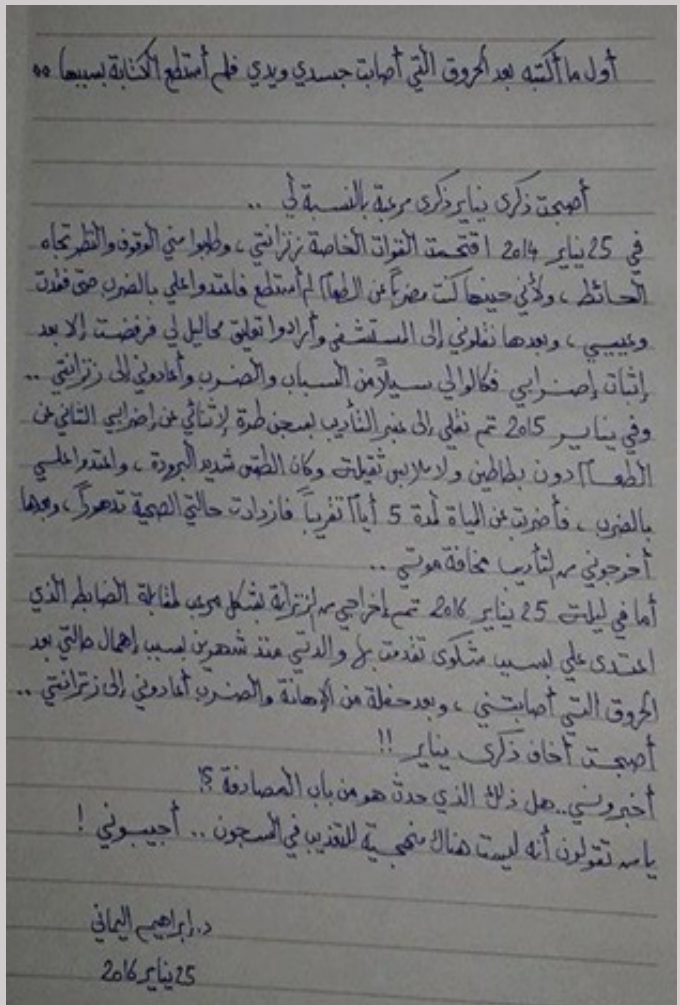 أول ما أكتبه بعد الحروق التي أصابت جسدي ويدي فلم أستطع الكتابة بسببها ..
أصبحت ذكرى يناير ذكرى مرعبة بالنسبة لي ..
في 25 يناير 2014 اقتحمت القوات الخاصة زنزانتي ، وطلبوا مني الوقوف والنظر تجاه
الحائط ، ولأني حينها كنت مضرباً عن الطعام لم أستطع فاعتدوا علي بالضرب حتى فقدت
وعيي ، وبعدها نقلوني إلى المستشفى وأرادوا تعليق محاليل لي فرفضت إلا بعد
إثبات إضرابي فكالوا لي سيلاً من السباب والضرب وأعادوني إلى زنزانتي ..
وفي يناير 2015 تم نقلي إلى عنبر التأديب بسجن طرة لإثنائي عن إضرابي الثاني عن
الطعام دون بطاطين ولا ملابس ثقيلة وكان الطقس شديد البرودة ، واعتدوا علي
بالضرب ، فأضربت عن المياة لمدة 5 أيام تقريباً فازدادت حالتي الصحية تدهوراً ، وبعدها
أخرجوني من التأديب مخافة موتي ..
أما في ليلة 25 يناير 2016 تم إخراجي من الزنزانة بشكل مريب لمقابلة الضابط الذي
اعتدى علي بسبب شكوى تقدمت بها والدتي منذ شهرين بسبب إهمال حالتي بعد
الحروق التي أصابتني ، وبعد حفلة من الإهانة والضرب أعادوني إلى زنزانتي ..
أصبحت أخاف ذكرى يناير !!
أخبروني.. هل ذلك الذي حدث هو من باب المصادفة ؟!
يا من تقولون أنه ليست هناك منهجية للتعذيب في السجون .. أجيبوني !
د. إبراهيم اليماني
25 يناير 2016